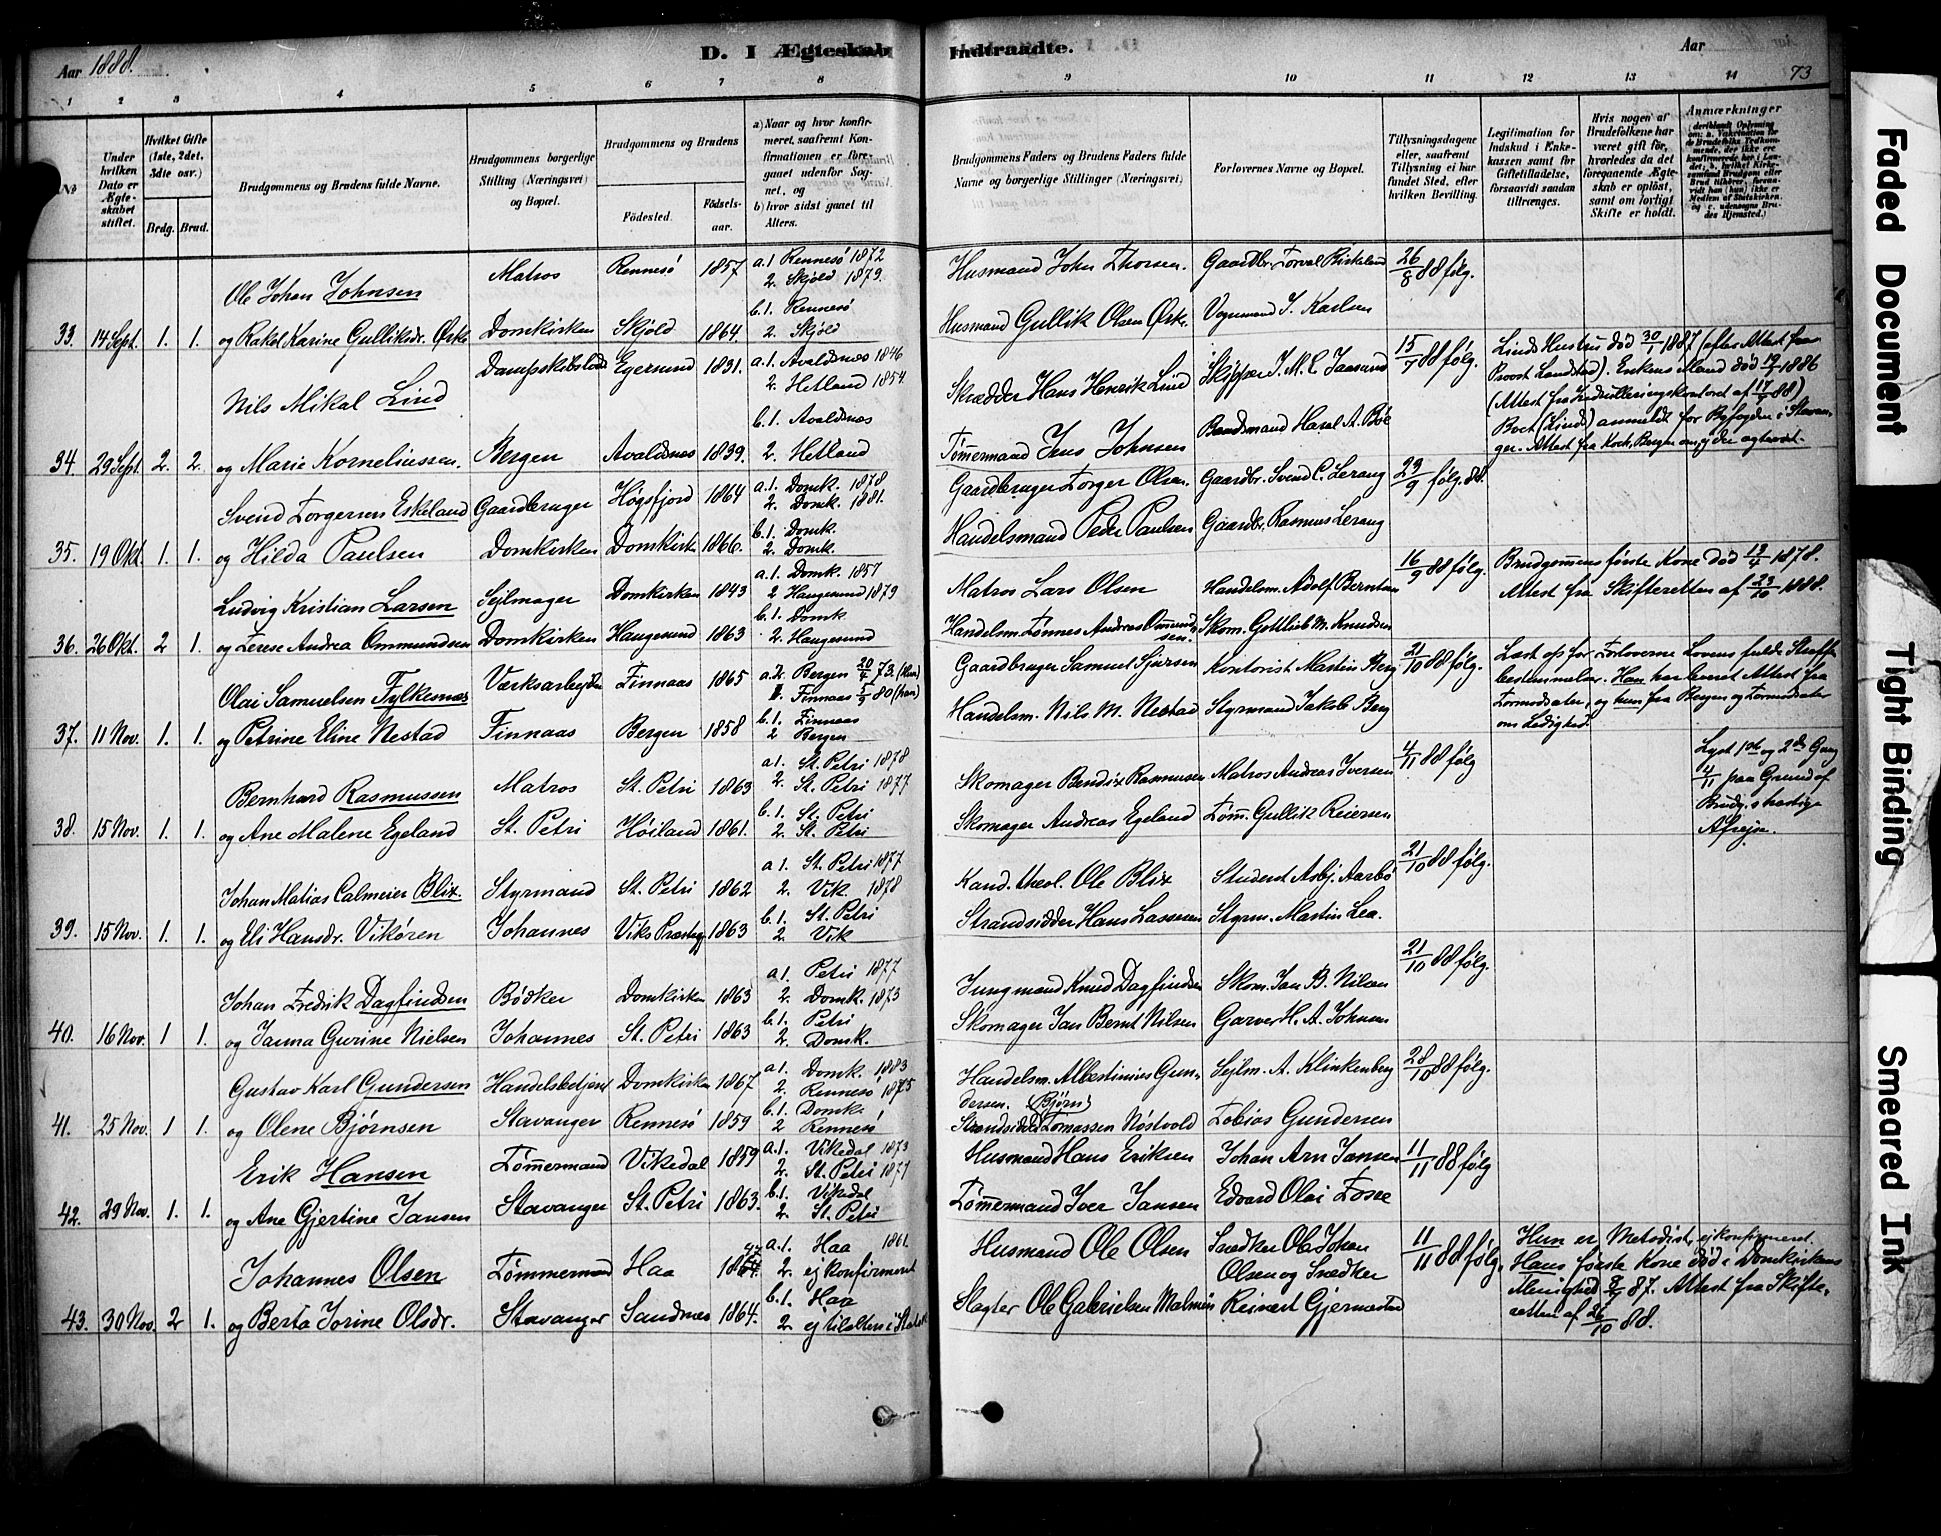 Aar 1888.
D. I Ægteskab Indtraadte.
Aar
73
1 2 3 4 5 6 7 8 9 10 11 12 13 14
Under hvilken Dato er Ægteskabet stiftet.
Hvilket Gifte (1ste, 2det, 3die osv.)
Brdg. Brud.
Brudgommens og Brudens fulde Navne.
Brudgommens borgerlige Stilling (Næringsvei) og Bopæl.
Brudgommens og Brudens
Fødested.
Fødselsaar.
a) Naar og hvor konfirmeret, saafremt Konfirmationen er foregaaet udenfor Sognet, og
b) hvor sidst gaaet til Alters.
Brudgommens Faders og Brudens Faders fulde Navne og borgerlige Stillinger (Næringsvei)
Forlovernes Navne og Bopæl.
Tillysningsdagene eller, saafremt Tillysning ei har fundet Sted, efter hvilken Bevilling.
Legitimation for Indskud i Enkekassen samt for Giftetilladelse, forsaavidt saadan tiltrænges.
Hvis nogen af Brudefolkene har været gift før, hvorledes da det foregaaende Ægteskab er opløst, samt om lovligt Skifte er holdt.
Anmærkninger
Ole Johan Johnsen Matros Rennesö 1857 a.1 Rennesö 1872 2. Skjold 1879. Husmand John Thorsen. Gaardbr. Torval Birkeland 26/8 88 følg.
33. 14 Sept. 1. 1. og Rakel Karine Gulliksdr. Ørke Domkirken Skjold 1864. b.1. Rennesö 2. Skjold Husmand Gullik Olsen Ørke. Vognmand J. Karlsen
Nils Mikal Lind Egersund 1831. a.1. Avaldsnes 1846 2. Hetland 1854. Skrædder Hans Henrik Lind Skipper J. M. C. Jaasund 15/7 88 følg. Linds Hustru död 30/1 1887 (efter Attest fra Provst Landstad). Enkens Mand död 19/2 1886
34. 29 Sept. 2. 2. og Marie Korneliussen. Bergen Avaldsnes 1839. b.1. Avaldsnes 2. Hetland Tømermand Jens Johnsen Baadsmand Havel A. Böe
Svend Torgersen Eskeland Gaardbruger Högsfjord 1864 a.1. Domk. 1878 2. Domk. 1881. Gaardbruger Torger Olsen. Gaardbr. Svend C. Lerang 23/9 følg. 88.
35. 19 Okt. 1. 1. og Hilda Paulsen Domkirken Domkirk. 1866. b.1. Domk. 2. Domk. Handelsmand Peder Paulsen Gaardbr. Rasmus Lerang
Ludvig Kristian Larsen Sejlmager Domkirken 1843 a.1. Domk. 1857 2 Haugesund 1879 Matros Lars Olsen Handelsm. Adolf Berntsen 16/9 88 følg. Brudgomens første Kone död 13/4 1878. Attest fra Skifteretten af 23/10 1888.
36. 26 Okt. 2 1. og Terese Andrea Ommundsen Domkirken Haugesund 1863 b.1. Domk 2. Haugesund Handelsm. Tönnes Andreas Ommundsen. Skom. Gottlieb M. Knudsen
Olai Samuelsen Fylkesnes Værksarbejder Finnaas 1865 a.2. Bergen 20/4 73. (hun) 1. Finnaas 5/9 80 (han) Gaardbruger Samuel Sjursen Kontorist Martin Berg 21/10 88 følg. Læst op for Forloverne Lovens fulde Straffebestemmelser. Han har bevist Attest fra Formodsæter, og hun fra Bergen og Formodsæter om Ledighed.
37. 11 Nov. 1. 1. og Petrine Eline Nestad Finnaas Bergen 1858 b.1. Finnaas 2 Bergen Handelsm. Nils M. Nestad Styrmand Jakob Berg
Bernhard Rasmussen Matros St. Petri 1863 a1. St. Petri 1878 2. St. Petri 1877 Skomager Bendix Rasmussen Matros Andreas Iversen 4/11 88 følg Lyst 1ste og 2den Gang 4/11 paa Grund af Brudg.s hastige Afrejse.
38. 15 Nov. 1. 1. og Ane Malene Egeland St. Petri Höiland 1861. b.1. St. Petri 2. St. Petri Skomager Andreas Egeland Tömm. Gullik Reiersen
Johan Matias Calmeier Blix Styrmand St. Petri 1862 a1. St. Petri 1877 2. Vik. 1878 Kand. theol. Ole Blix Student Asbj. Aarbö 21/10 88 følg.
39. 15 Nov. 1. 1. og Eli Hansdr. Vikören Johannes Viks Præstegj 1863 b.1. St. Petri 2. Vik Strandsidder Hans Lassesen Styrm. Martin Lea.
Johan Fredrik Dagfindsen Bödker Domkirken 1863 a1. Petri 1877 2. Domk. 1873 Jungmand Knud Dagfindsen Skom. Jan B. Nilsen 21/10 88 følg.
40. 16 Nov. 1 1. og Janna Gurine Nielsen Johannes St. Petri 1863 b.1. Petri 2. Domk. Skomager Jan Bernt Nilsen Garver H. A. Johnsen
Gustav Karl Gundersen Handelsbetjent Domkirken 1867 a1. Domk. 1883 2. Rennesö 1875 Handelsm. Albertinius Gundersen. Sejlm. A. Klinkenberg 28/10 88 følg.
41. 25 Nov. 1 1. og Olene Bjørnsen Stavanger Rennesö 1859 b.1. Domk. 2 Rennesö Strandsidder (Bjørn) Tomassen Nöstvold Tobias Gundersen
Erik Hansen Tømermand Vikedal 1859 a.1. Vikedal 1873 2. St. Petri 1877 Husmand Hans Eriksen Johan Arn Jansen 11/11 88 følg
42. 29 Nov. 1. 1. og Ane Gjertine Jansen Stavanger St. Petri 1863. b.1. Vikedal 2. St. Petri Tømermand Iver Jansen Edvard Olai Tosee
Johannes Olsen Tømmermand Haa a.1. Haa 1861. 2. ej konfirmeret Husmand Ole Olsen Snedker Ole Johan Olsen og Snedker 11/11 88 følg. Hun er Metodist, ej konfirmeret. Hans første Kone död i Domkirkens Menighed 8/7 87. Attest fra Skifteretten af 26/10 88.
43. 30 Nov. 2 1. og Berta Jorine Olsdr. Stavanger Sandnes 1864. b.1. Haa 2. ej tilalters i Statsk. Slagter Ole Gabrielsen Malmin Reinert Gjermestad
Faded Document
Tight Binding
Smeared Ink